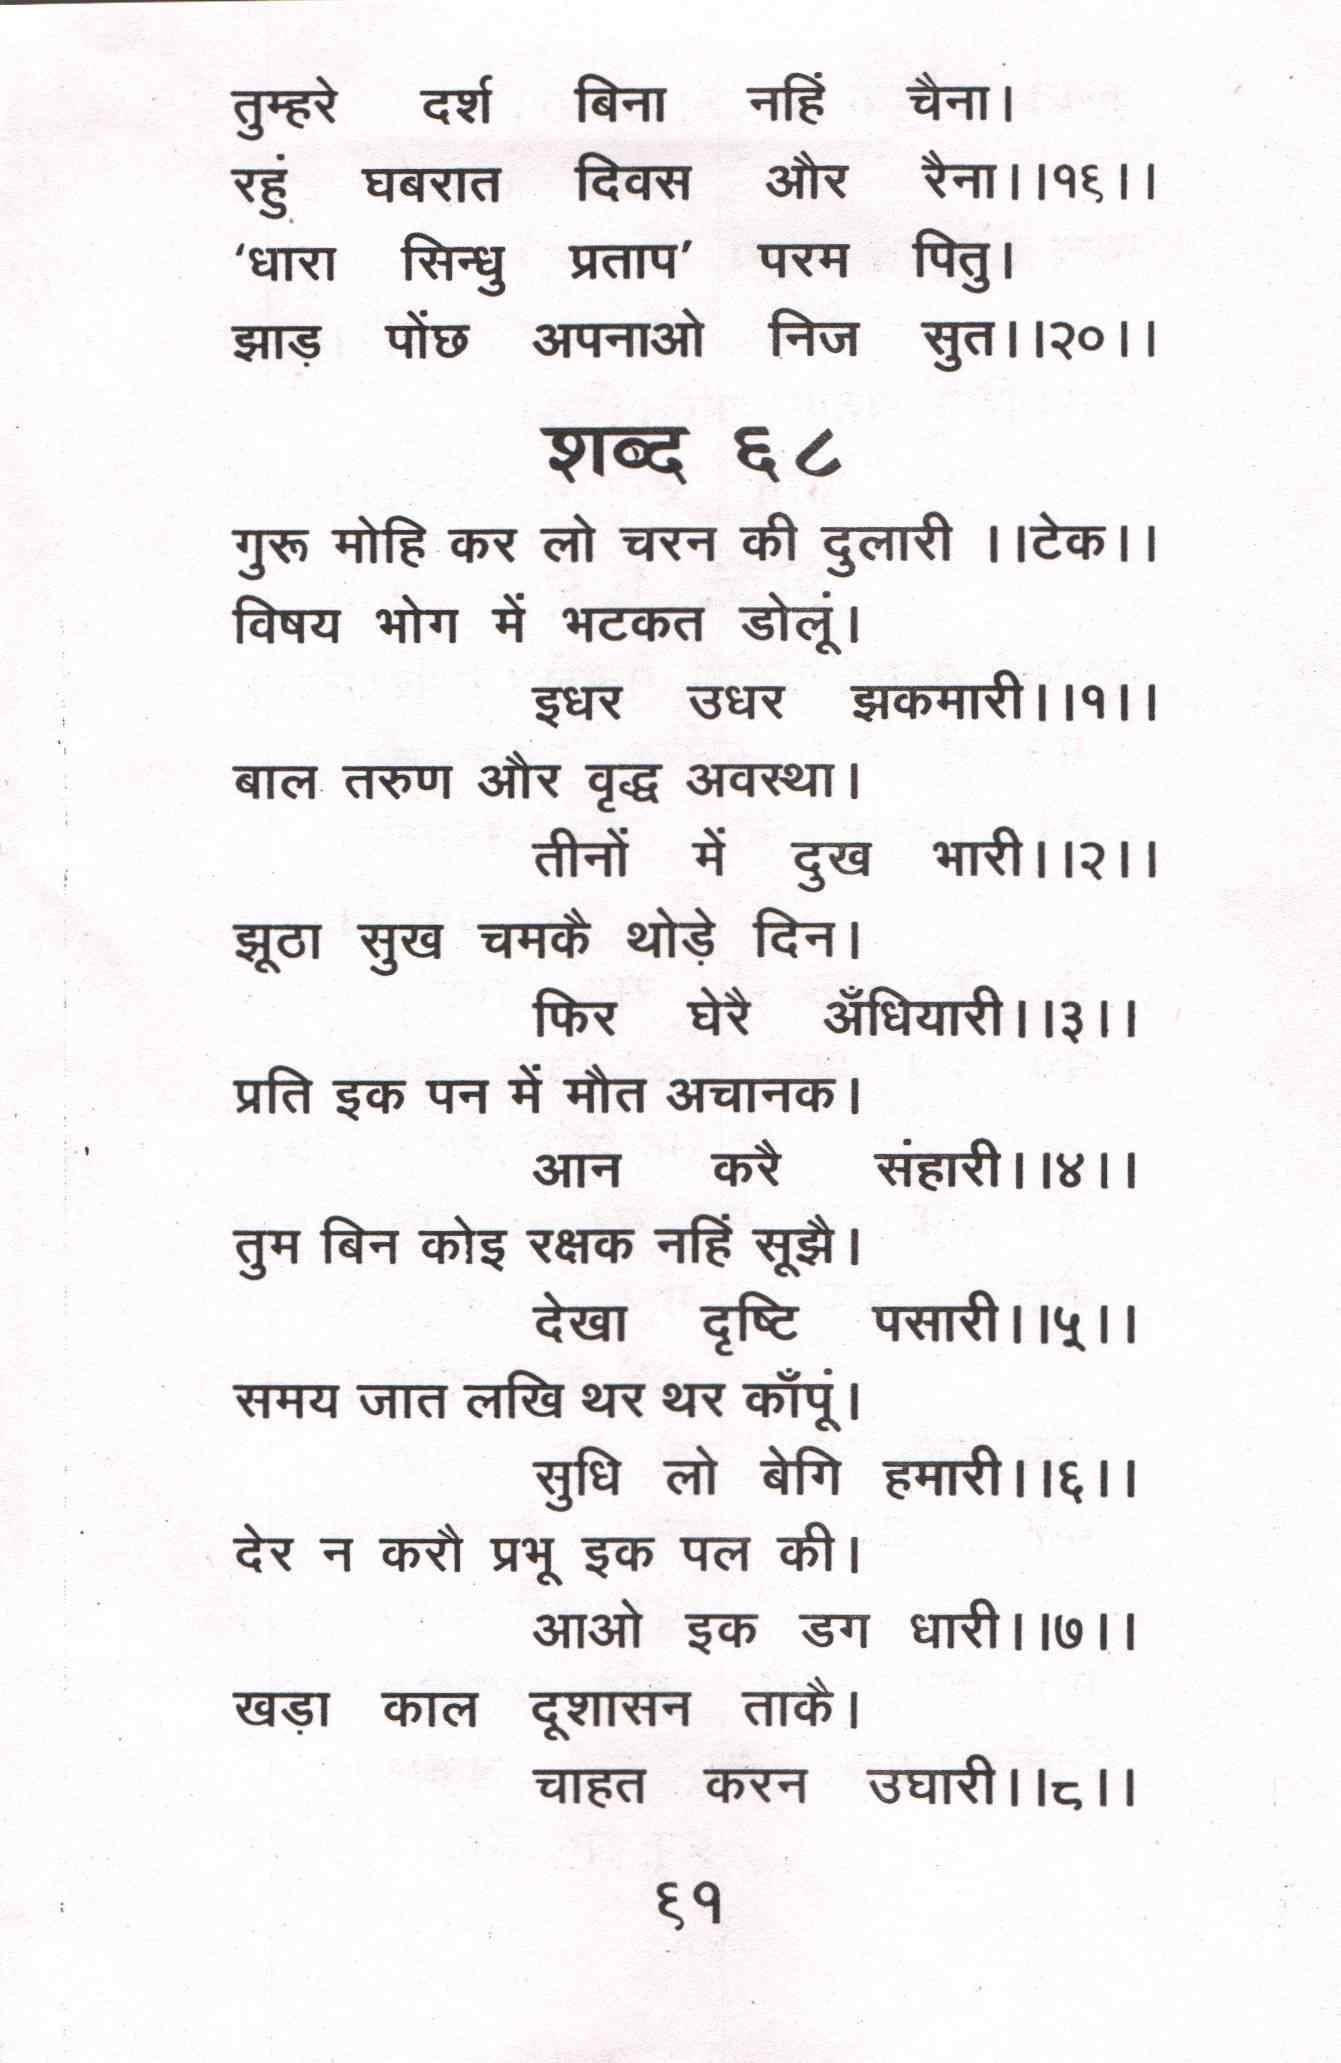 तुम्हरे दर्श बिना नहिं चैना।
रहुं घबरात दिवस और रैना।।१९।।
‘धारा सिन्धु प्रताप’ परम पितु।
झाड़ पोंछ अपनाओ निज सुत।।२०।।
शब्द ६८
गुरू मोहि कर लो चरन की दुलारी ।।टेक।।
विषय भोग में भटकत डोलूं।
इधर उधर झकमारी।।१।।
बाल तरुण और वृद्ध अवस्था।
तीनों में दुख भारी।।२।।
झूठा सुख चमकै थोड़े दिन।
फिर घेरै अँधियारी।।३।।
प्रति इक पन में मौत अचानक।
आन करै संहारी।।४।।
तुम बिन कोइ रक्षक नहिं सूझै।
देखा दृष्टि पसारी।।५।।
समय जात लखि थर थर काँपूं।
सुधि लो बेगि हमारी।।६।।
देर न करौ प्रभू इक पल की।
आओ इक डग धारी।।७।।
खड़ा काल दूशासन ताकै।
चाहत करन उघारी।।८।।
६१